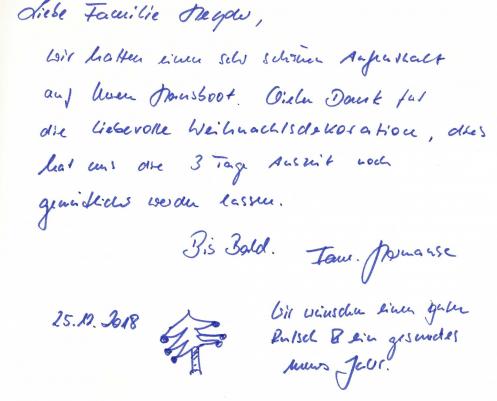 Liebe Familie
wir hatten einen sehr schönen Aufenthalt
auf Ihrem Hausboot. Vielen Dank für
die liebevolle Weihnachtsdekoration, dies
hat uns die 3 Tage Auszeit noch
gemütlicher werden lassen.
Bis Bald. Fam.
25.12.2018
Wir wünschen einen guten
Rutsch & ein gesundes
neues Jahr.